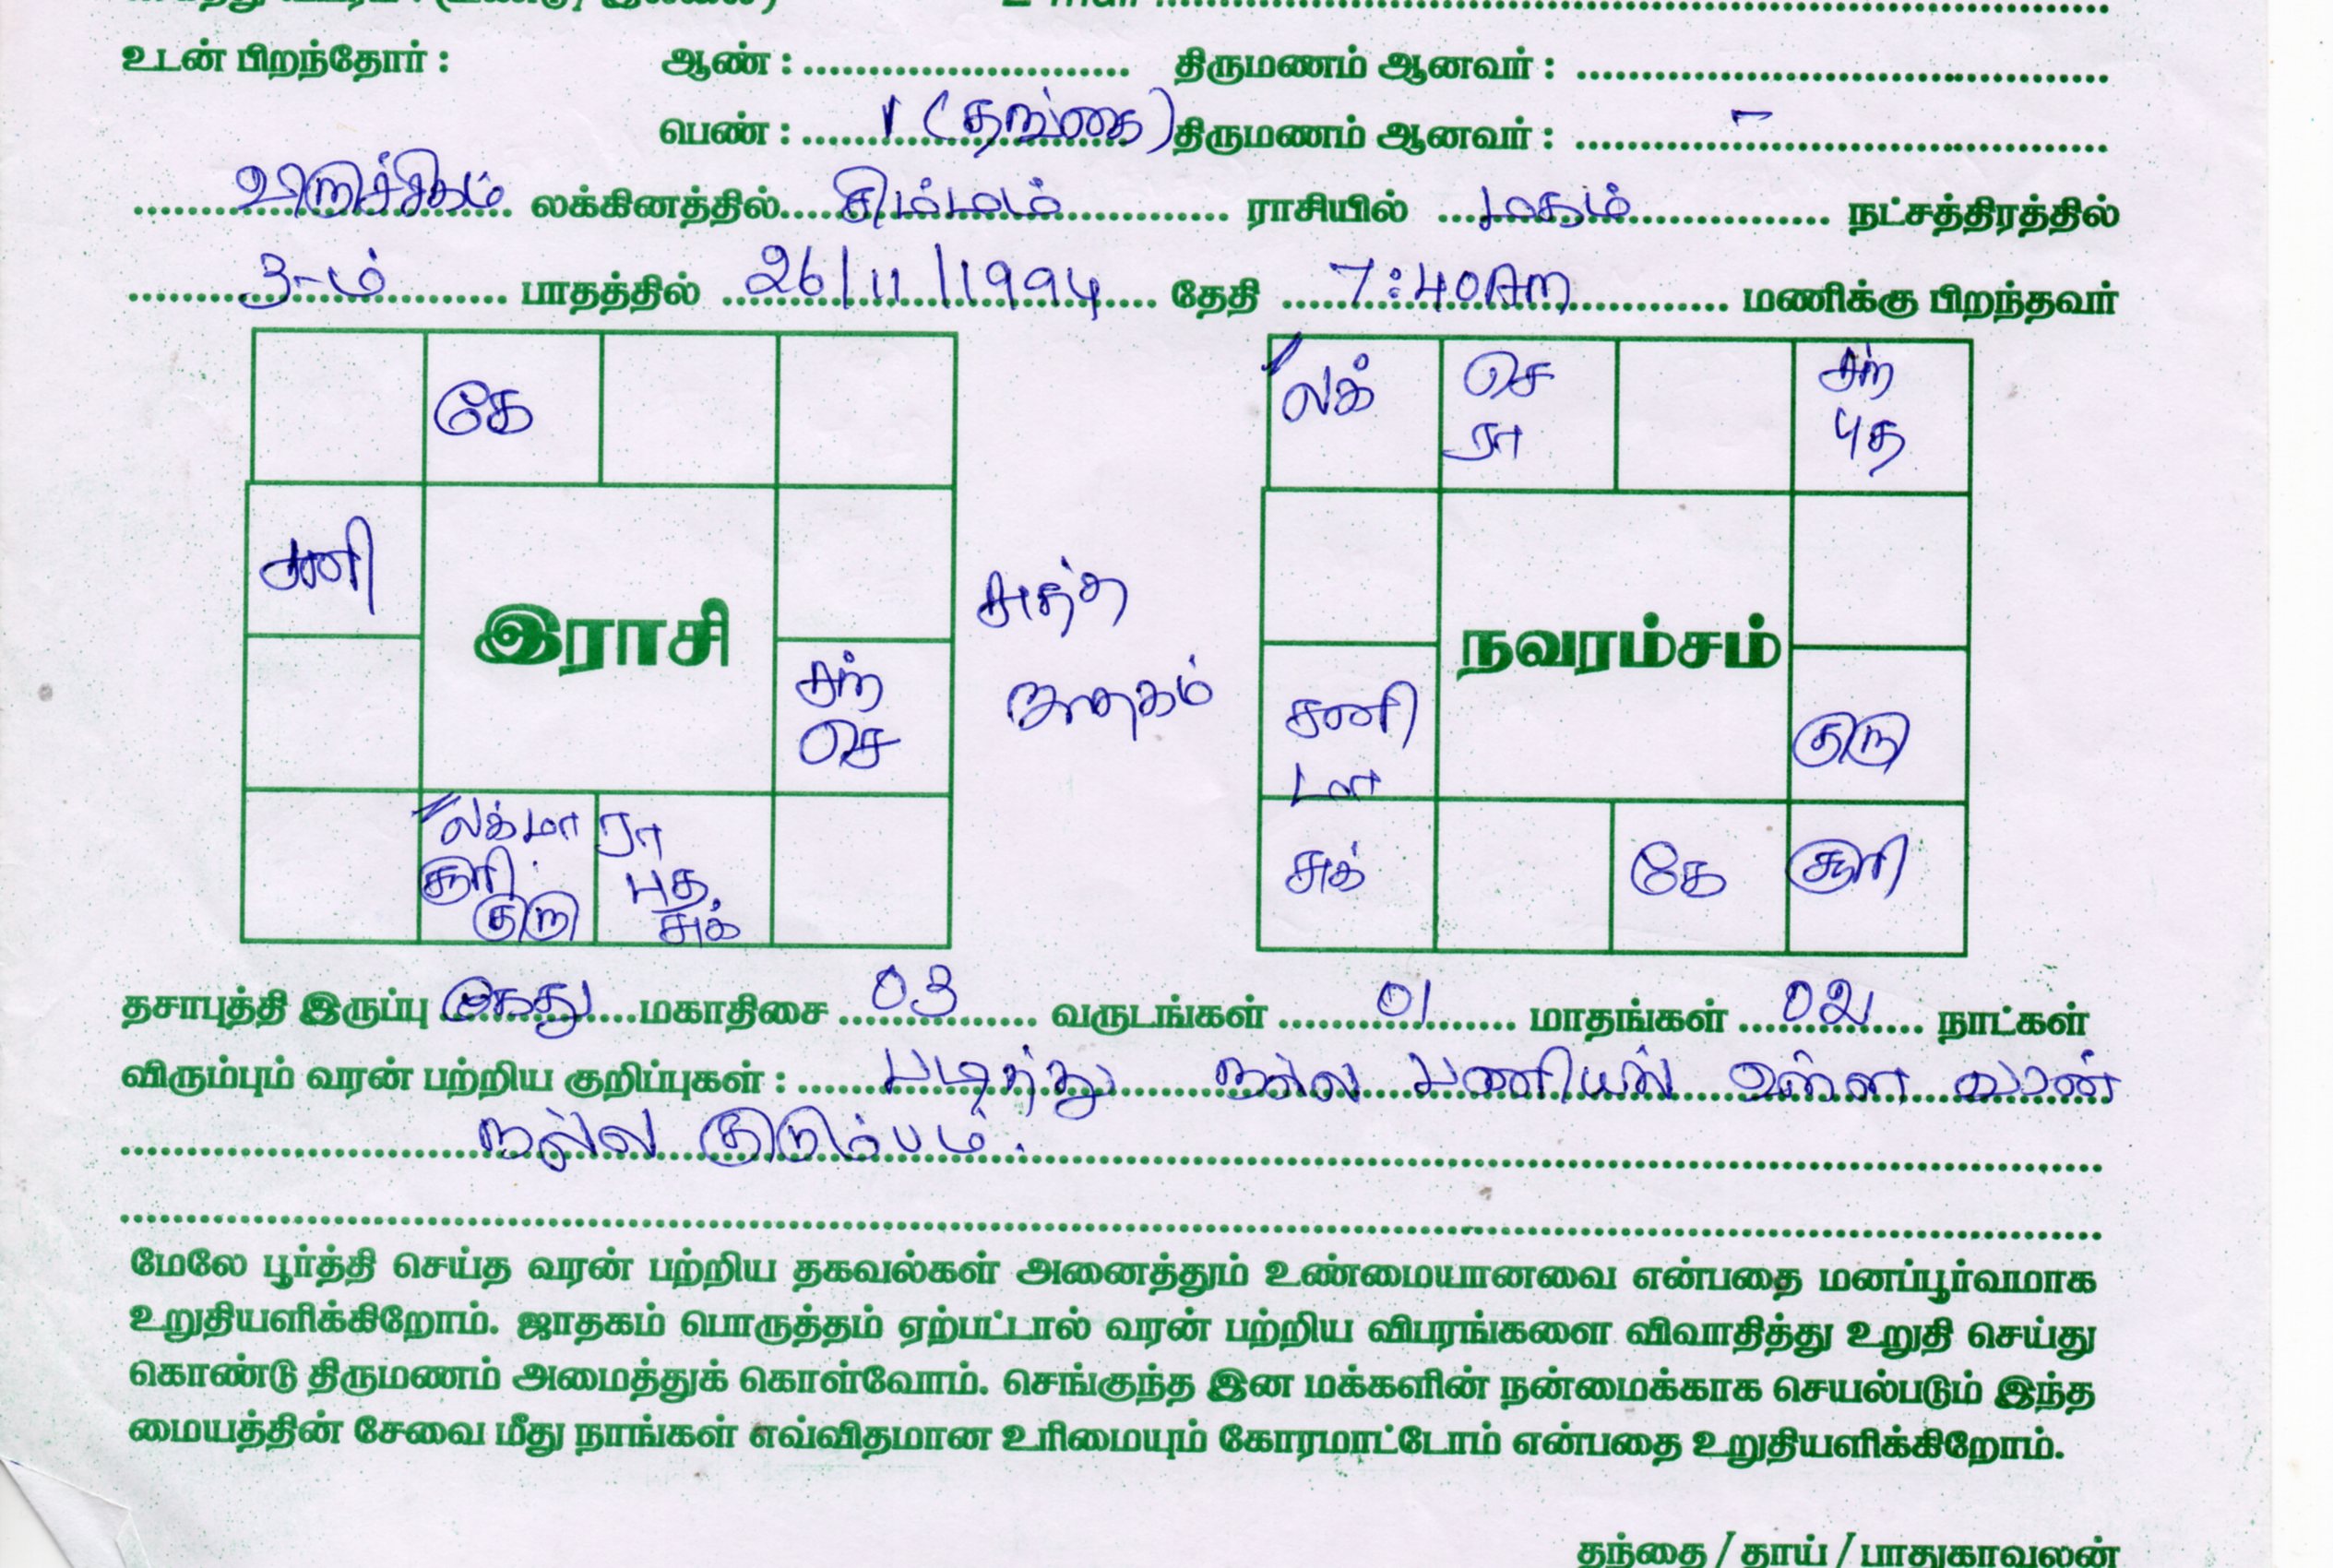 E-mail :
உடன் பிறந்தோர் : ஆண் : திருமணம் ஆனவர் :
பெண் : 1 (தங்கை) திருமணம் ஆனவர் : -
விருச்சிகம் லக்கினத்தில் சிம்மம் ராசியில் மகம் நட்சத்திரத்தில்
3-ம் பாதத்தில் 26/11/1994 தேதி 7:40Am மணிக்கு பிறந்தவர்
கே
சனி
இராசி
சந்
செ
லக் மா
சூரி
குரு
ரா
புத
சுக்
சுத்த
ஜாதகம்
லக்
செ
ரா
சந்
புத
நவரம்சம்
சனி
மா
குரு
சுக்
கே
சூரி
தசாபுத்தி இருப்பு கேது மகாதிசை 03 வருடங்கள் 01 மாதங்கள் 02 நாட்கள்
விரும்பும் வரன் பற்றிய குறிப்புகள் : படித்து நல்ல பணியில் உள்ள வரன்
நல்ல குடும்பம்.
மேலே பூர்த்தி செய்த வரன் பற்றிய தகவல்கள் அனைத்தும் உண்மையானவை என்பதை மனப்பூர்வமாக
உறுதியளிக்கிறோம். ஜாதகம் பொருத்தம் ஏற்பட்டால் வரன் பற்றிய விபரங்களை விவாதித்து உறுதி செய்து
கொண்டு திருமணம் அமைத்துக் கொள்வோம். செங்குந்த இன மக்களின் நன்மைக்காக செயல்படும் இந்த
மையத்தின் சேவை மீது நாங்கள் எவ்விதமான உரிமையும் கோரமாட்டோம் என்பதை உறுதியளிக்கிறோம்.
தந்தை / தாய் / பாதுகாவலன்